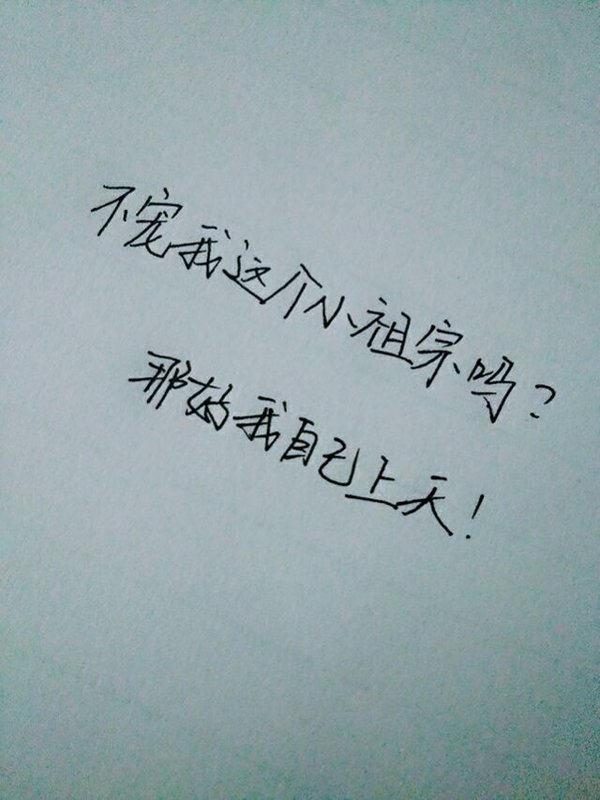 不宠我这个小祖宗吗?
那好我自己上天!